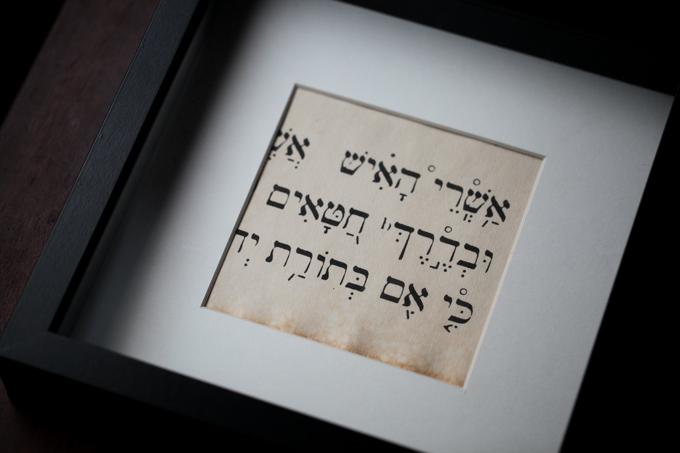 אַשְֽׁרֵי הָאִישׁ אֲשֶׁ
וּבְדֶרֶךְ חַטָּאִים
כִּי אִם בְּתוֹרַת יְד